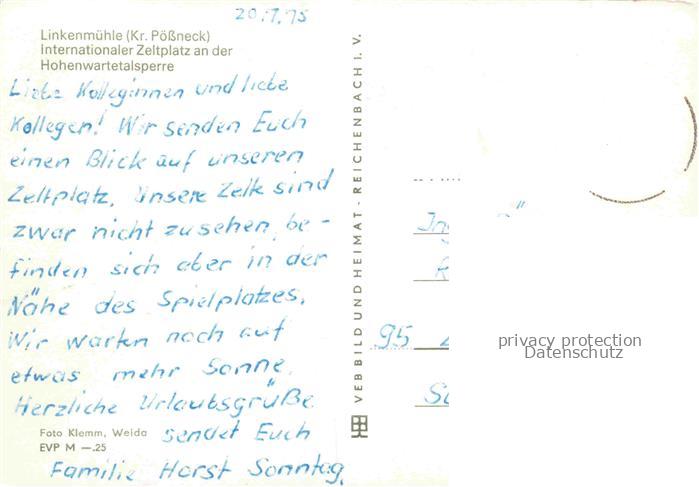 20.7.75
Linkenmühle (Kr. Pößneck)
Internationaler Zeltplatz an der
Hohenwartetalsperre
Liebe Kolleginnen und liebe
Kollegen! Wir senden Euch
einen Blick auf unseren
Zeltplatz. Unsere Zelte sind
zwar nicht zu sehen, be-
finden sich aber in der
Nähe des Spielplatzes.
Wir warten noch auf
etwas mehr Sonne.
Herzliche Urlaubsgrüße
sendet Euch
Familie Horst Sonntag.
Foto Klemm, Weida
EVP M —.25
VEB BILD UND HEIMAT · REICHENBACH I. V.
95
privacy protection
Datenschutz